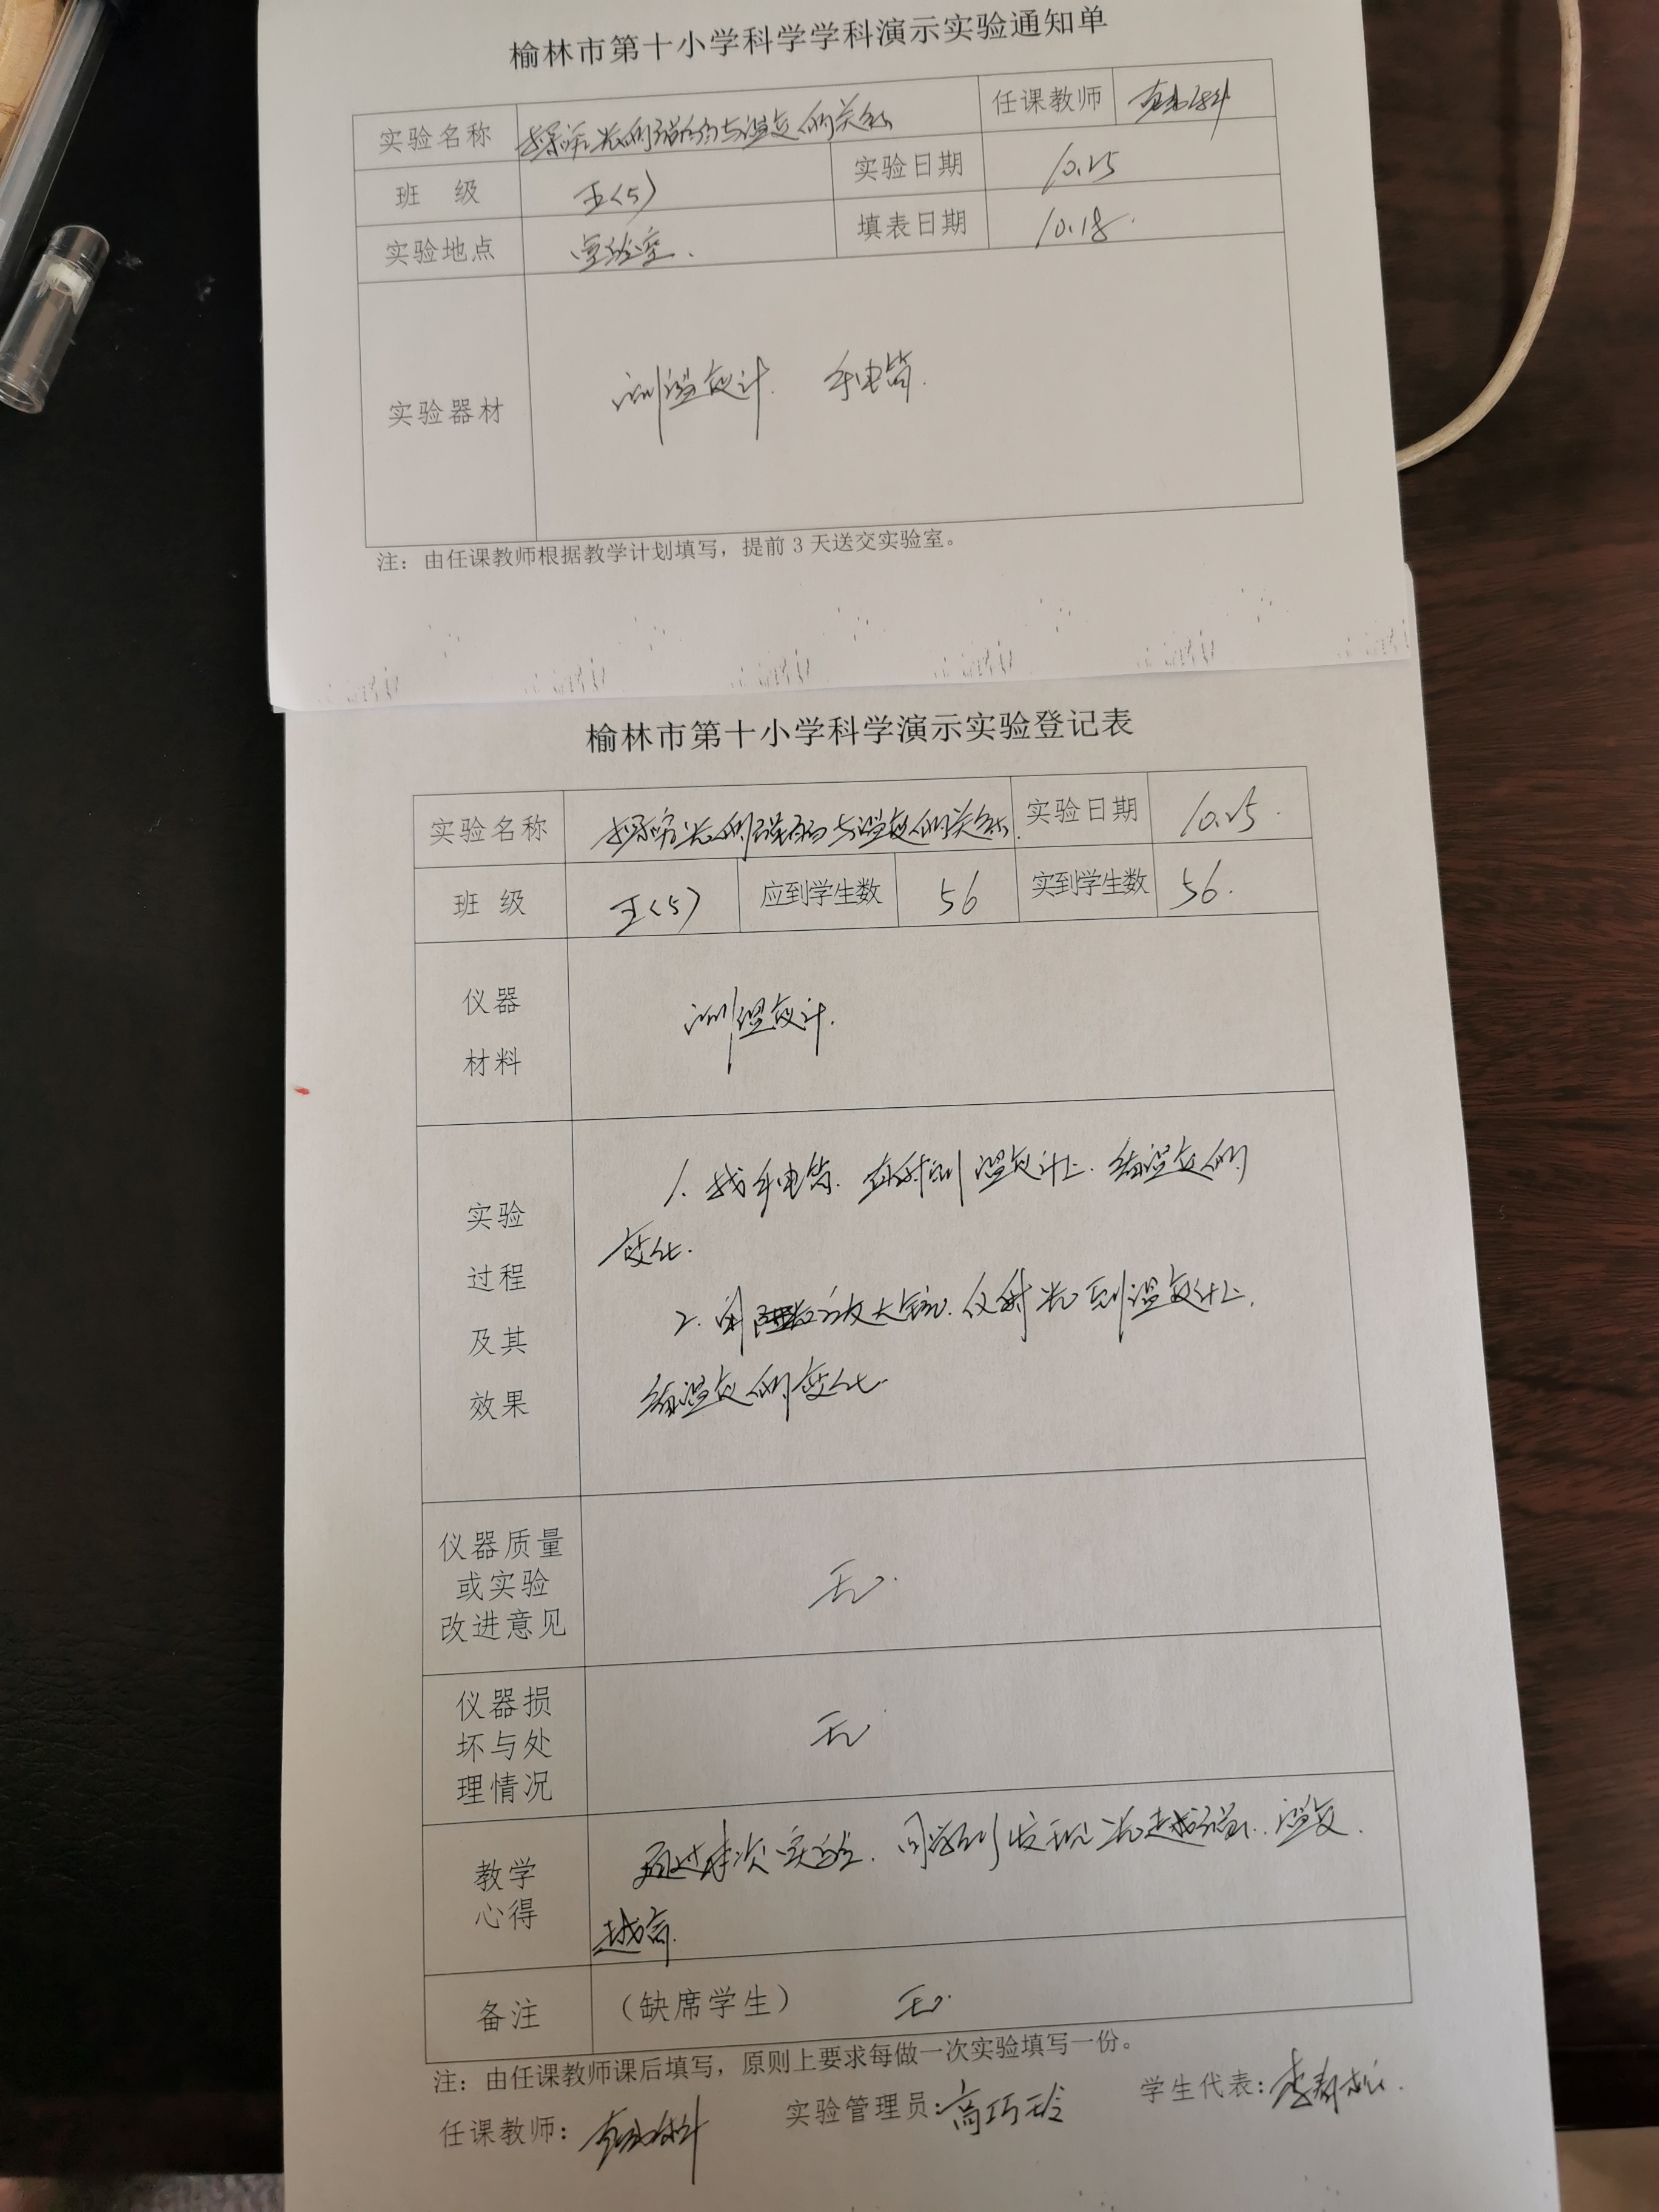 榆林市第十小学科学学科演示实验通知单
实验名称 探究光的强弱与温度的关系 任课教师
班 级 五(5) 实验日期 10.25
实验地点 实验室. 填表日期 10.18.
实验器材 测温度计. 手电筒.
注：由任课教师根据教学计划填写，提前3天送交实验室。
榆林市第十小学科学演示实验登记表
实验名称 探究光的强弱与温度的关系. 实验日期 10.25.
班 级 五(5) 应到学生数 56 实到学生数 56.
仪器
材料
测温度计.
实验
过程
及其
效果
1. 找手电筒. 直射到温度计上. 看温度的
变化.
2. 用 放大镜. 反射光到温度计上.
看温度的变化.
仪器质量
或实验
改进意见
无.
仪器损
坏与处
理情况
无
教学
心得
通过本次实验. 同学们发现光越强. 温度.
越高.
备注 （缺席学生） 无.
注：由任课教师课后填写，原则上要求每做一次实验填写一份。
任课教师： 实验管理员：高巧玲 学生代表：